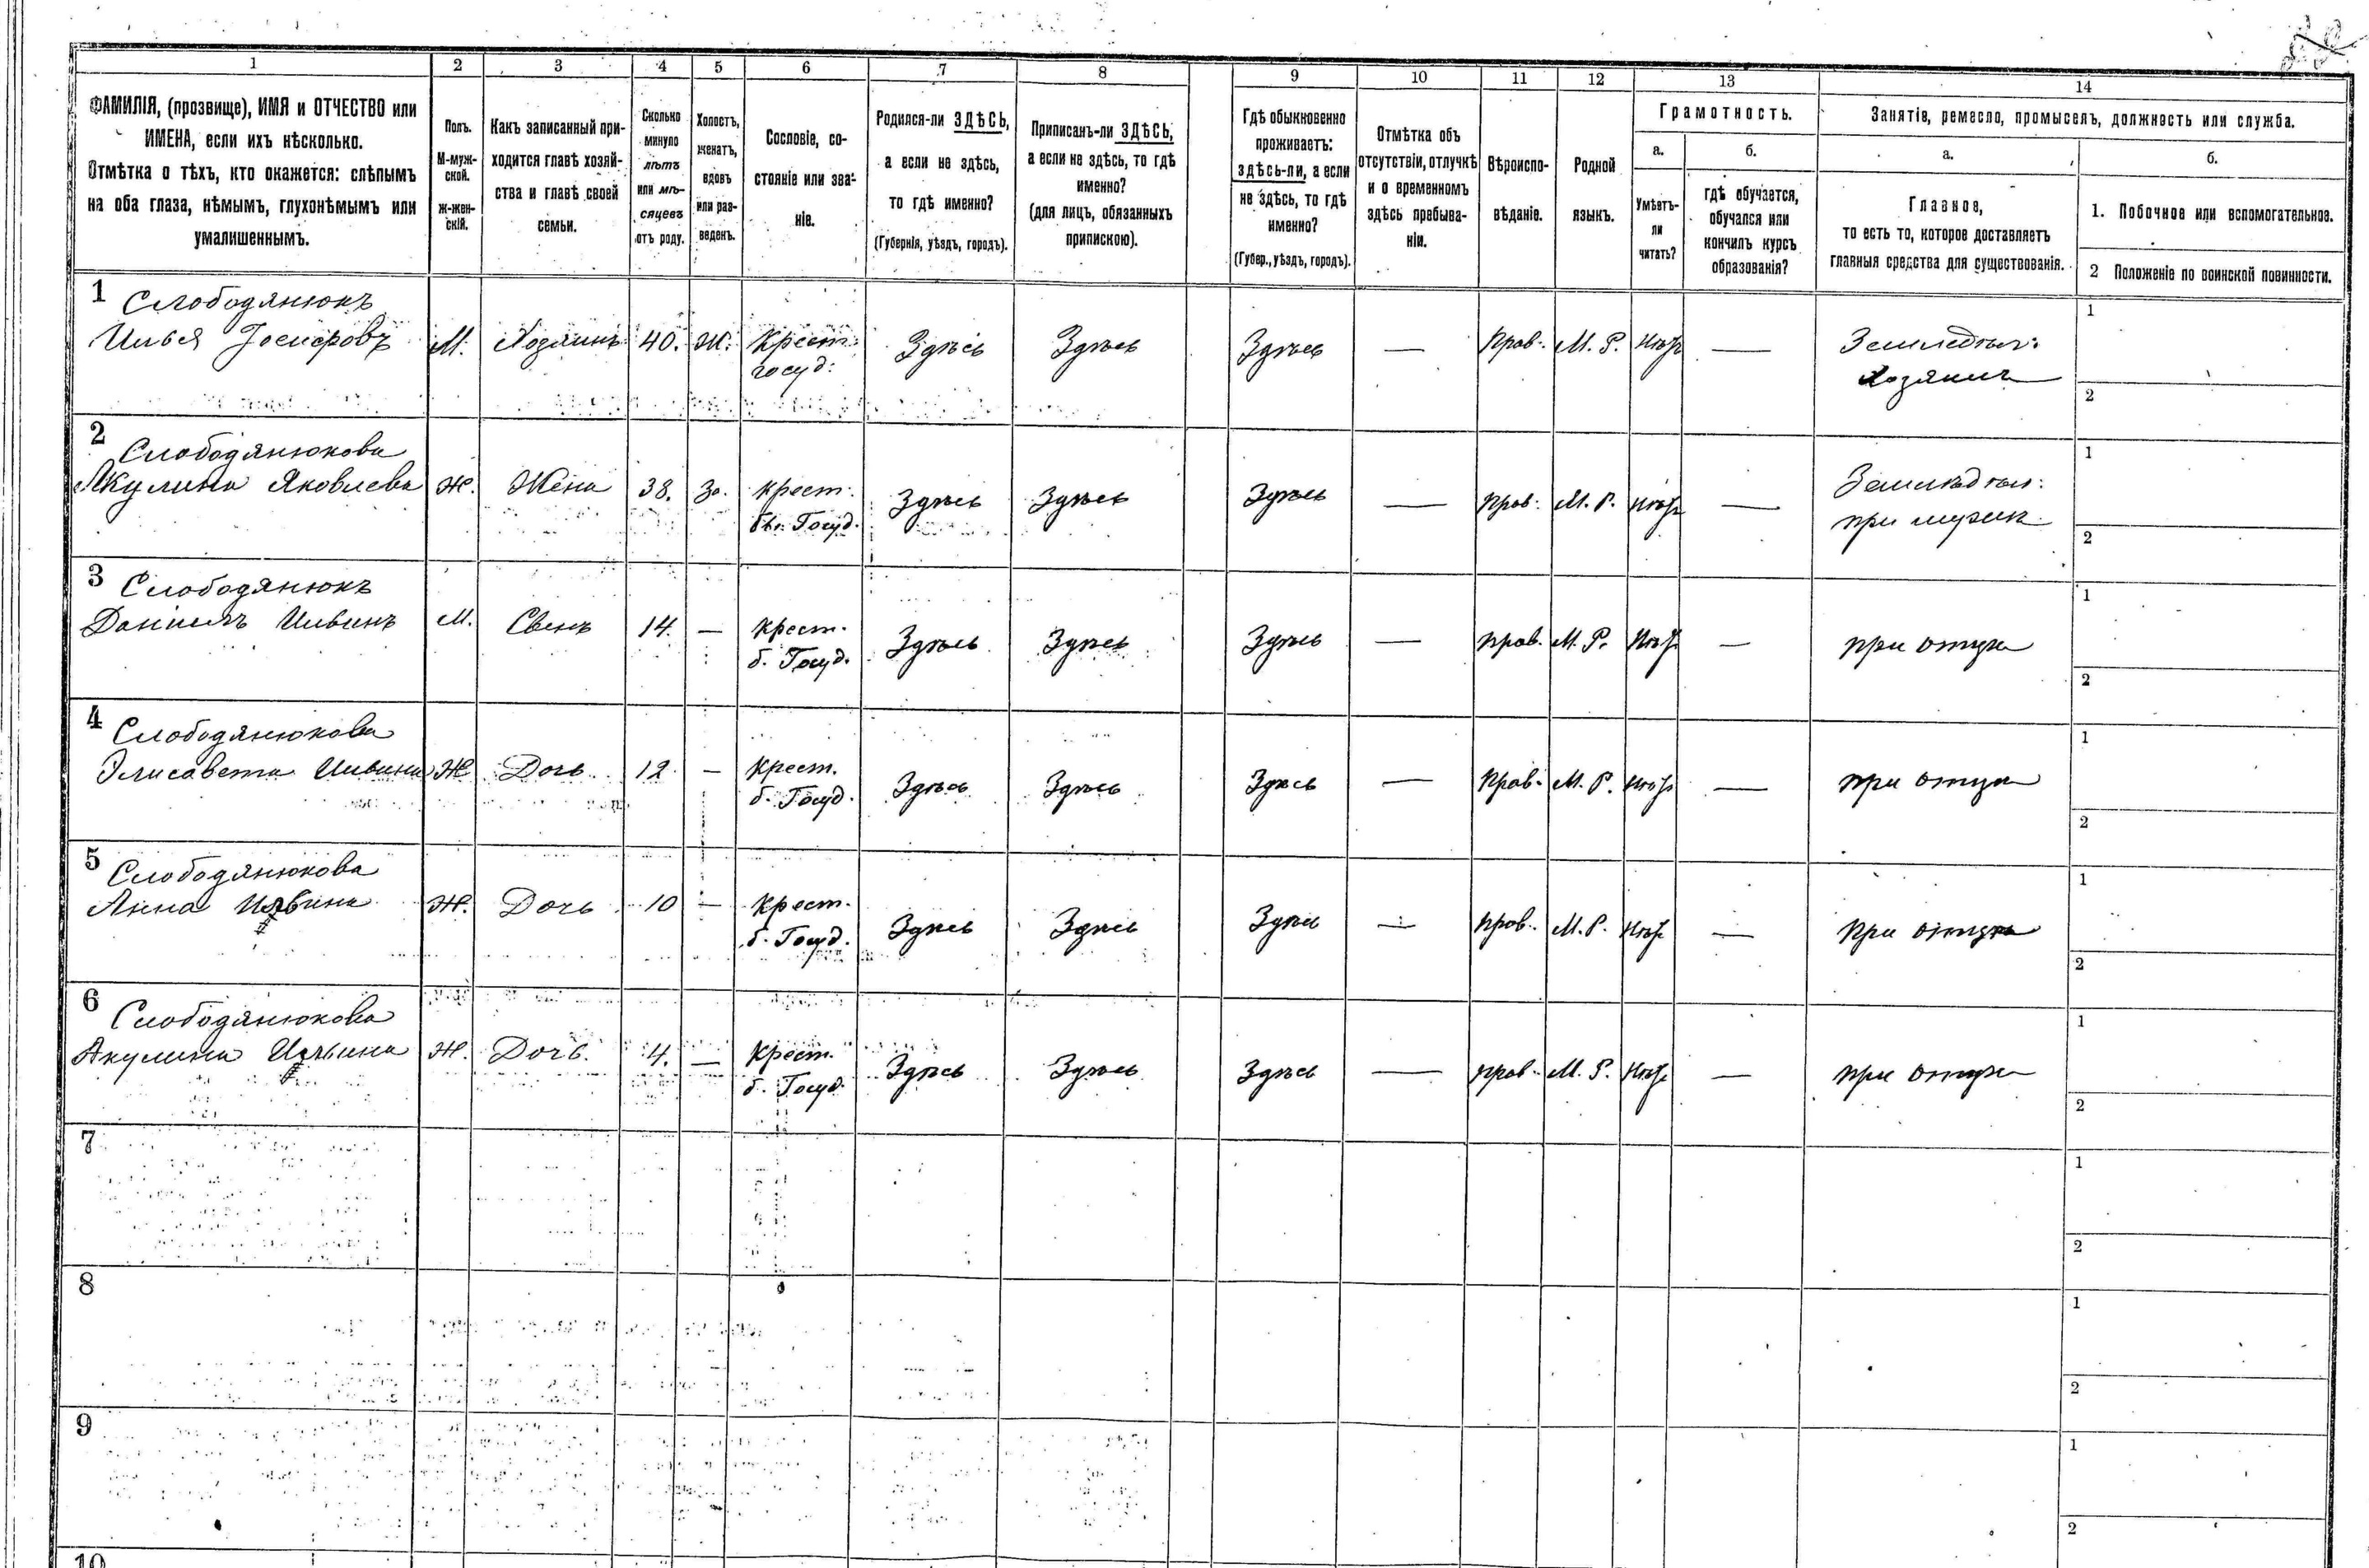 1 2 3 4 5 6 7 8 9 10 11 12 13 14
ФАМИЛІЯ, (прозвище), ИМЯ и ОТЧЕСТВО или
ИМЕНА, если ихъ нѣсколько.
Отмѣтка о тѣхъ, кто окажется: слѣпымъ
на оба глаза, нѣмымъ, глухонѣмымъ или
умалишеннымъ.
Полъ.
М-муж-
ской.
Ж-жен-
скій.
Какъ записанный при-
ходится главѣ хозяй-
ства и главѣ своей
семьи.
Сколько
минуло
лѣтъ
или мѣ-
сяцевъ
отъ роду.
Холостъ,
женатъ,
вдовъ
или раз-
веденъ.
Сословіе, со-
стояніе или зва-
ніе.
Родился-ли ЗДѢСЬ,
а если не здѣсь,
то гдѣ именно?
(Губернія, уѣздъ, городъ).
Приписанъ-ли ЗДѢСЬ,
а если не здѣсь, то гдѣ
именно?
(для лицъ, обязанныхъ
припискою).
Гдѣ обыкновенно
проживаетъ:
ЗДѢСЬ-ЛИ, а если
не здѣсь, то гдѣ
именно?
(Губер., уѣздъ, городъ).
Отмѣтка объ
отсутствіи, отлучкѣ
и о временномъ
здѣсь пребыва-
ніи.
Вѣроиспо-
вѣданіе.
Родной
языкъ.
Грамотность.
а.
Умѣетъ-
ли
читать?
б.
гдѣ обучается,
обучался или
кончилъ курсъ
образованія?
Занятіе, ремесло, промыселъ, должность или служба.
а.
Главное,
то есть то, которое доставляетъ
главныя средства для существованія.
б.
1. Побочное или вспомогательное.
2 Положеніе по воинской повинности.
1 Слободянюкъ
Илья Іосифовъ М. Хозяинъ 40. Ж. Крест: Здѣсь Здѣсь Здѣсь — Прав. М. Р. Нѣтъ — Земледѣл:
госуд: Хозяинъ
1
2
2 Слободянюкова
Акулина Яковлева Ж. Жена 38. За. крест. Здѣсь Здѣсь Здѣсь — Прав. М. Р. Нѣтъ — Земледѣл:
бы. Госуд. при мужѣ
1
2
3 Слободянюкъ
Даніилъ Ильинъ М. Сынъ 14. — крест. Здѣсь Здѣсь Здѣсь — прав. М. Р. Нѣтъ — при отцѣ
б. Госуд.
1
2
4 Слободянюкова
Элисавета Ильина Ж Дочь 12 — Крест. Здѣсь Здѣсь Здѣсь — Прав. М. Р. Нѣтъ — при отцѣ
б. Госуд.
1
2
5 Слободянюкова
Анна Ильина Ж. Дочь 10 — Крест. Здѣсь Здѣсь Здѣсь — прав. М. Р. Нѣтъ — при отцѣ
б. Госуд.
1
2
6 Слободянюкова
Акулина Ильина Ж. Дочь. 4. — Крест. Здѣсь Здѣсь Здѣсь — прав. М. Р. Нѣтъ — при отцѣ
б. Госуд.
1
2
7
1
2
8
1
2
9
1
2
10